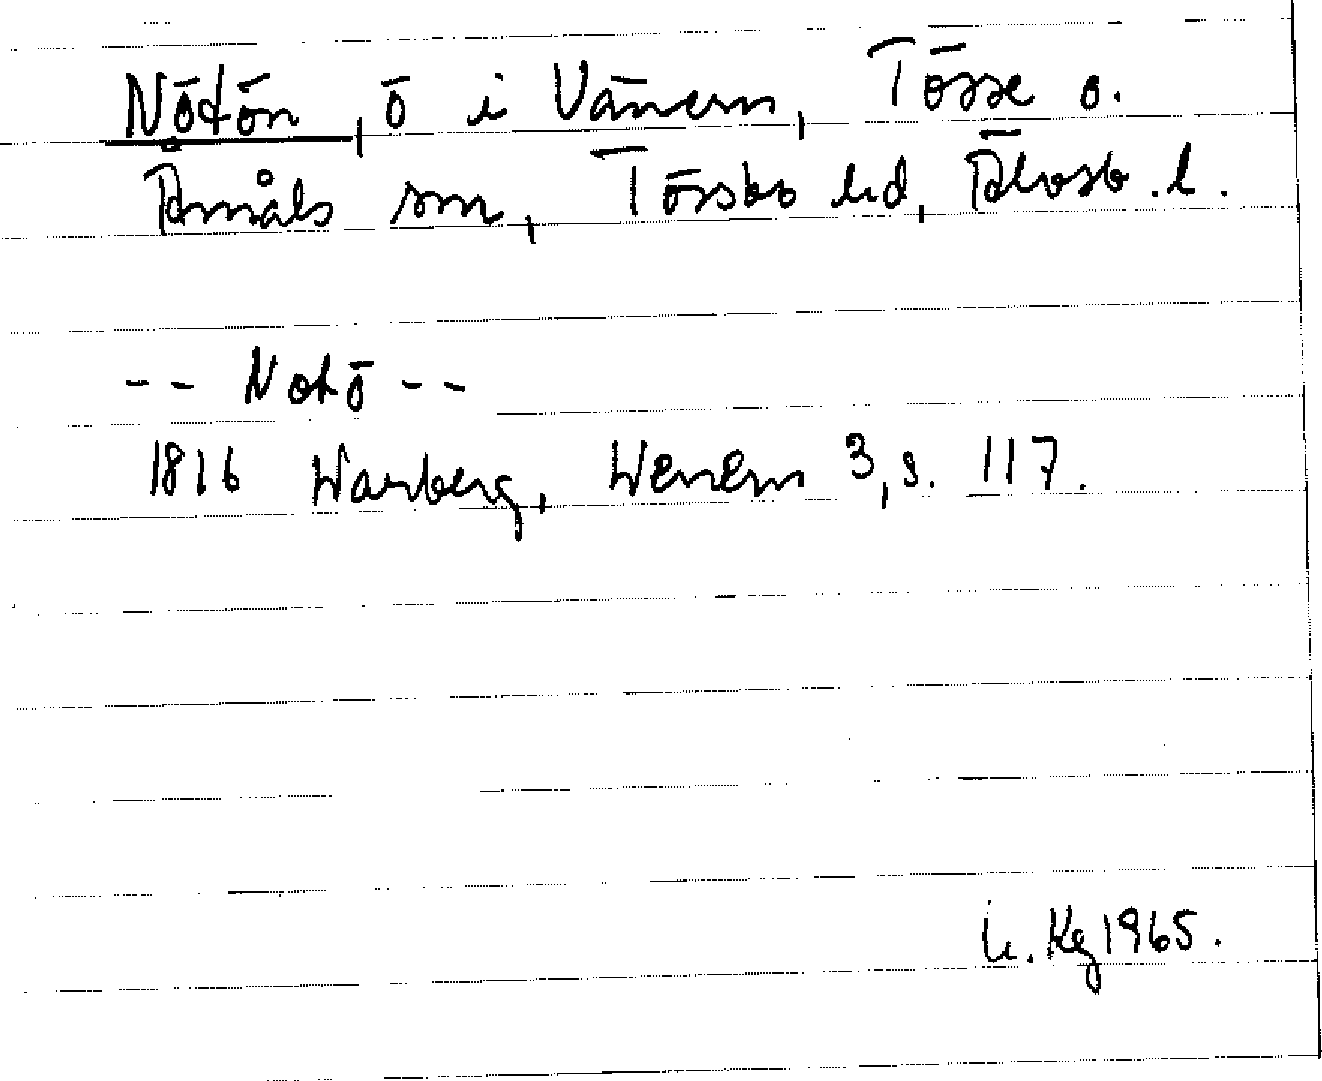 Nötön, ö i Vänern, Tösse o.
Åmåls sn, Tössbo hd, Älvsb. l.
-- Notö --
1816 Warberg, Wenern 3, s. 117.
Kg 1965.